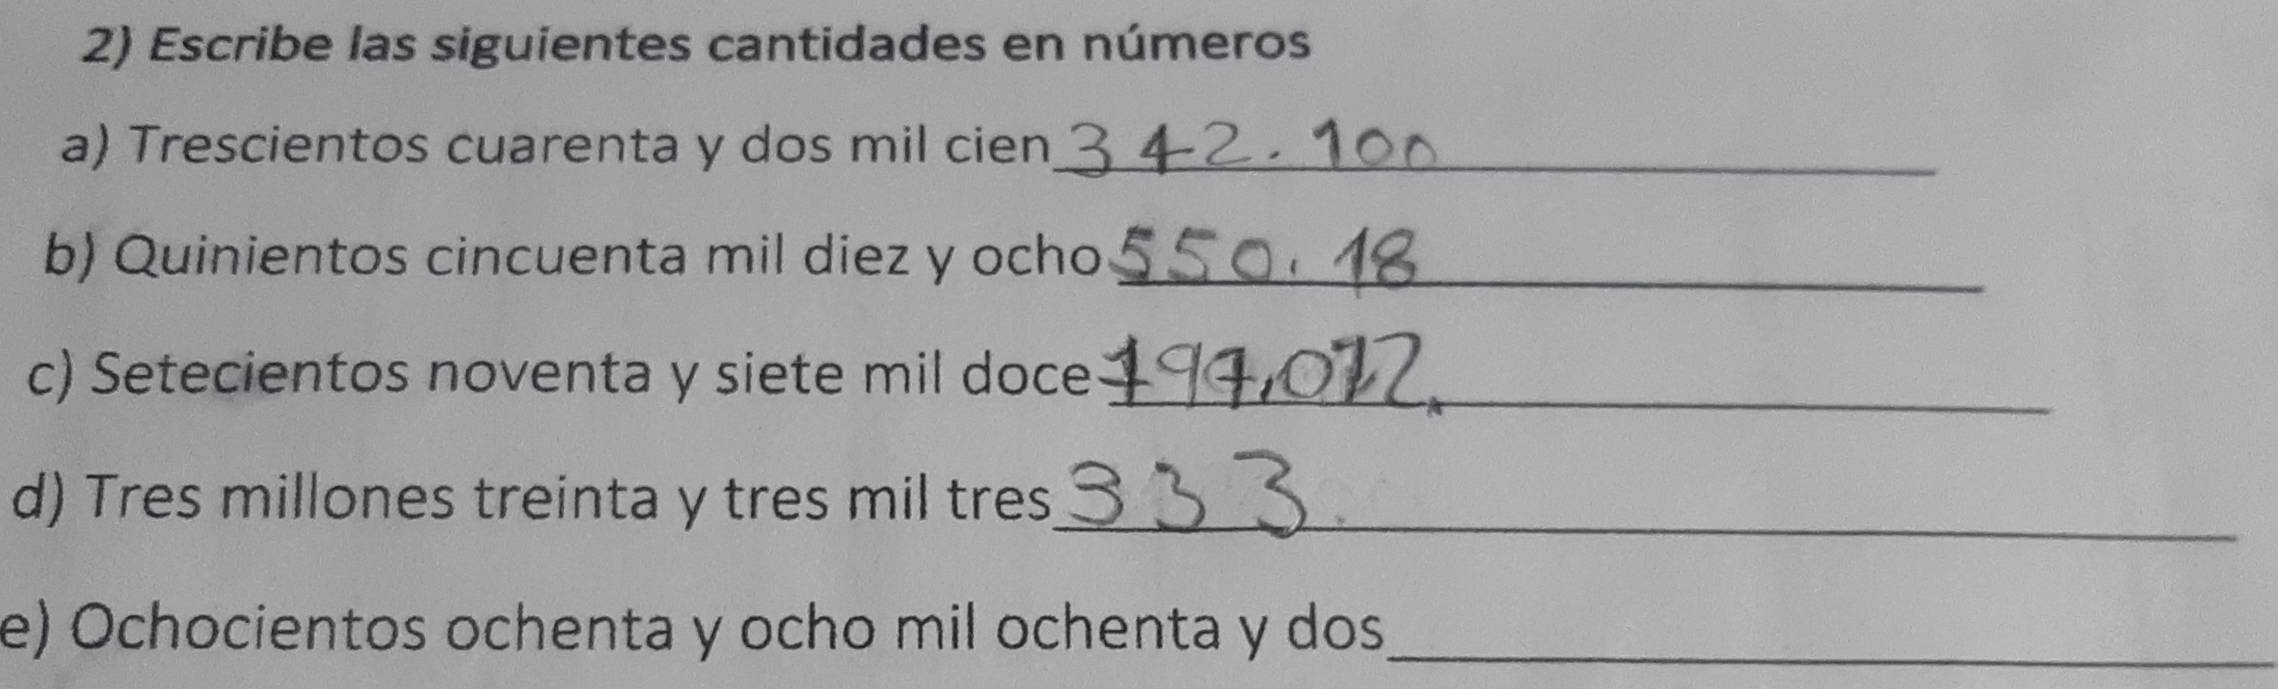 2) Escribe las siguientes cantidades en números
a) Trescientos cuarenta y dos mil cien 342.100
b) Quinientos cincuenta mil diez y ocho 550.18
c) Setecientos noventa y siete mil doce 797,012
d) Tres millones treinta y tres mil tres 333
e) Ochocientos ochenta y ocho mil ochenta y dos